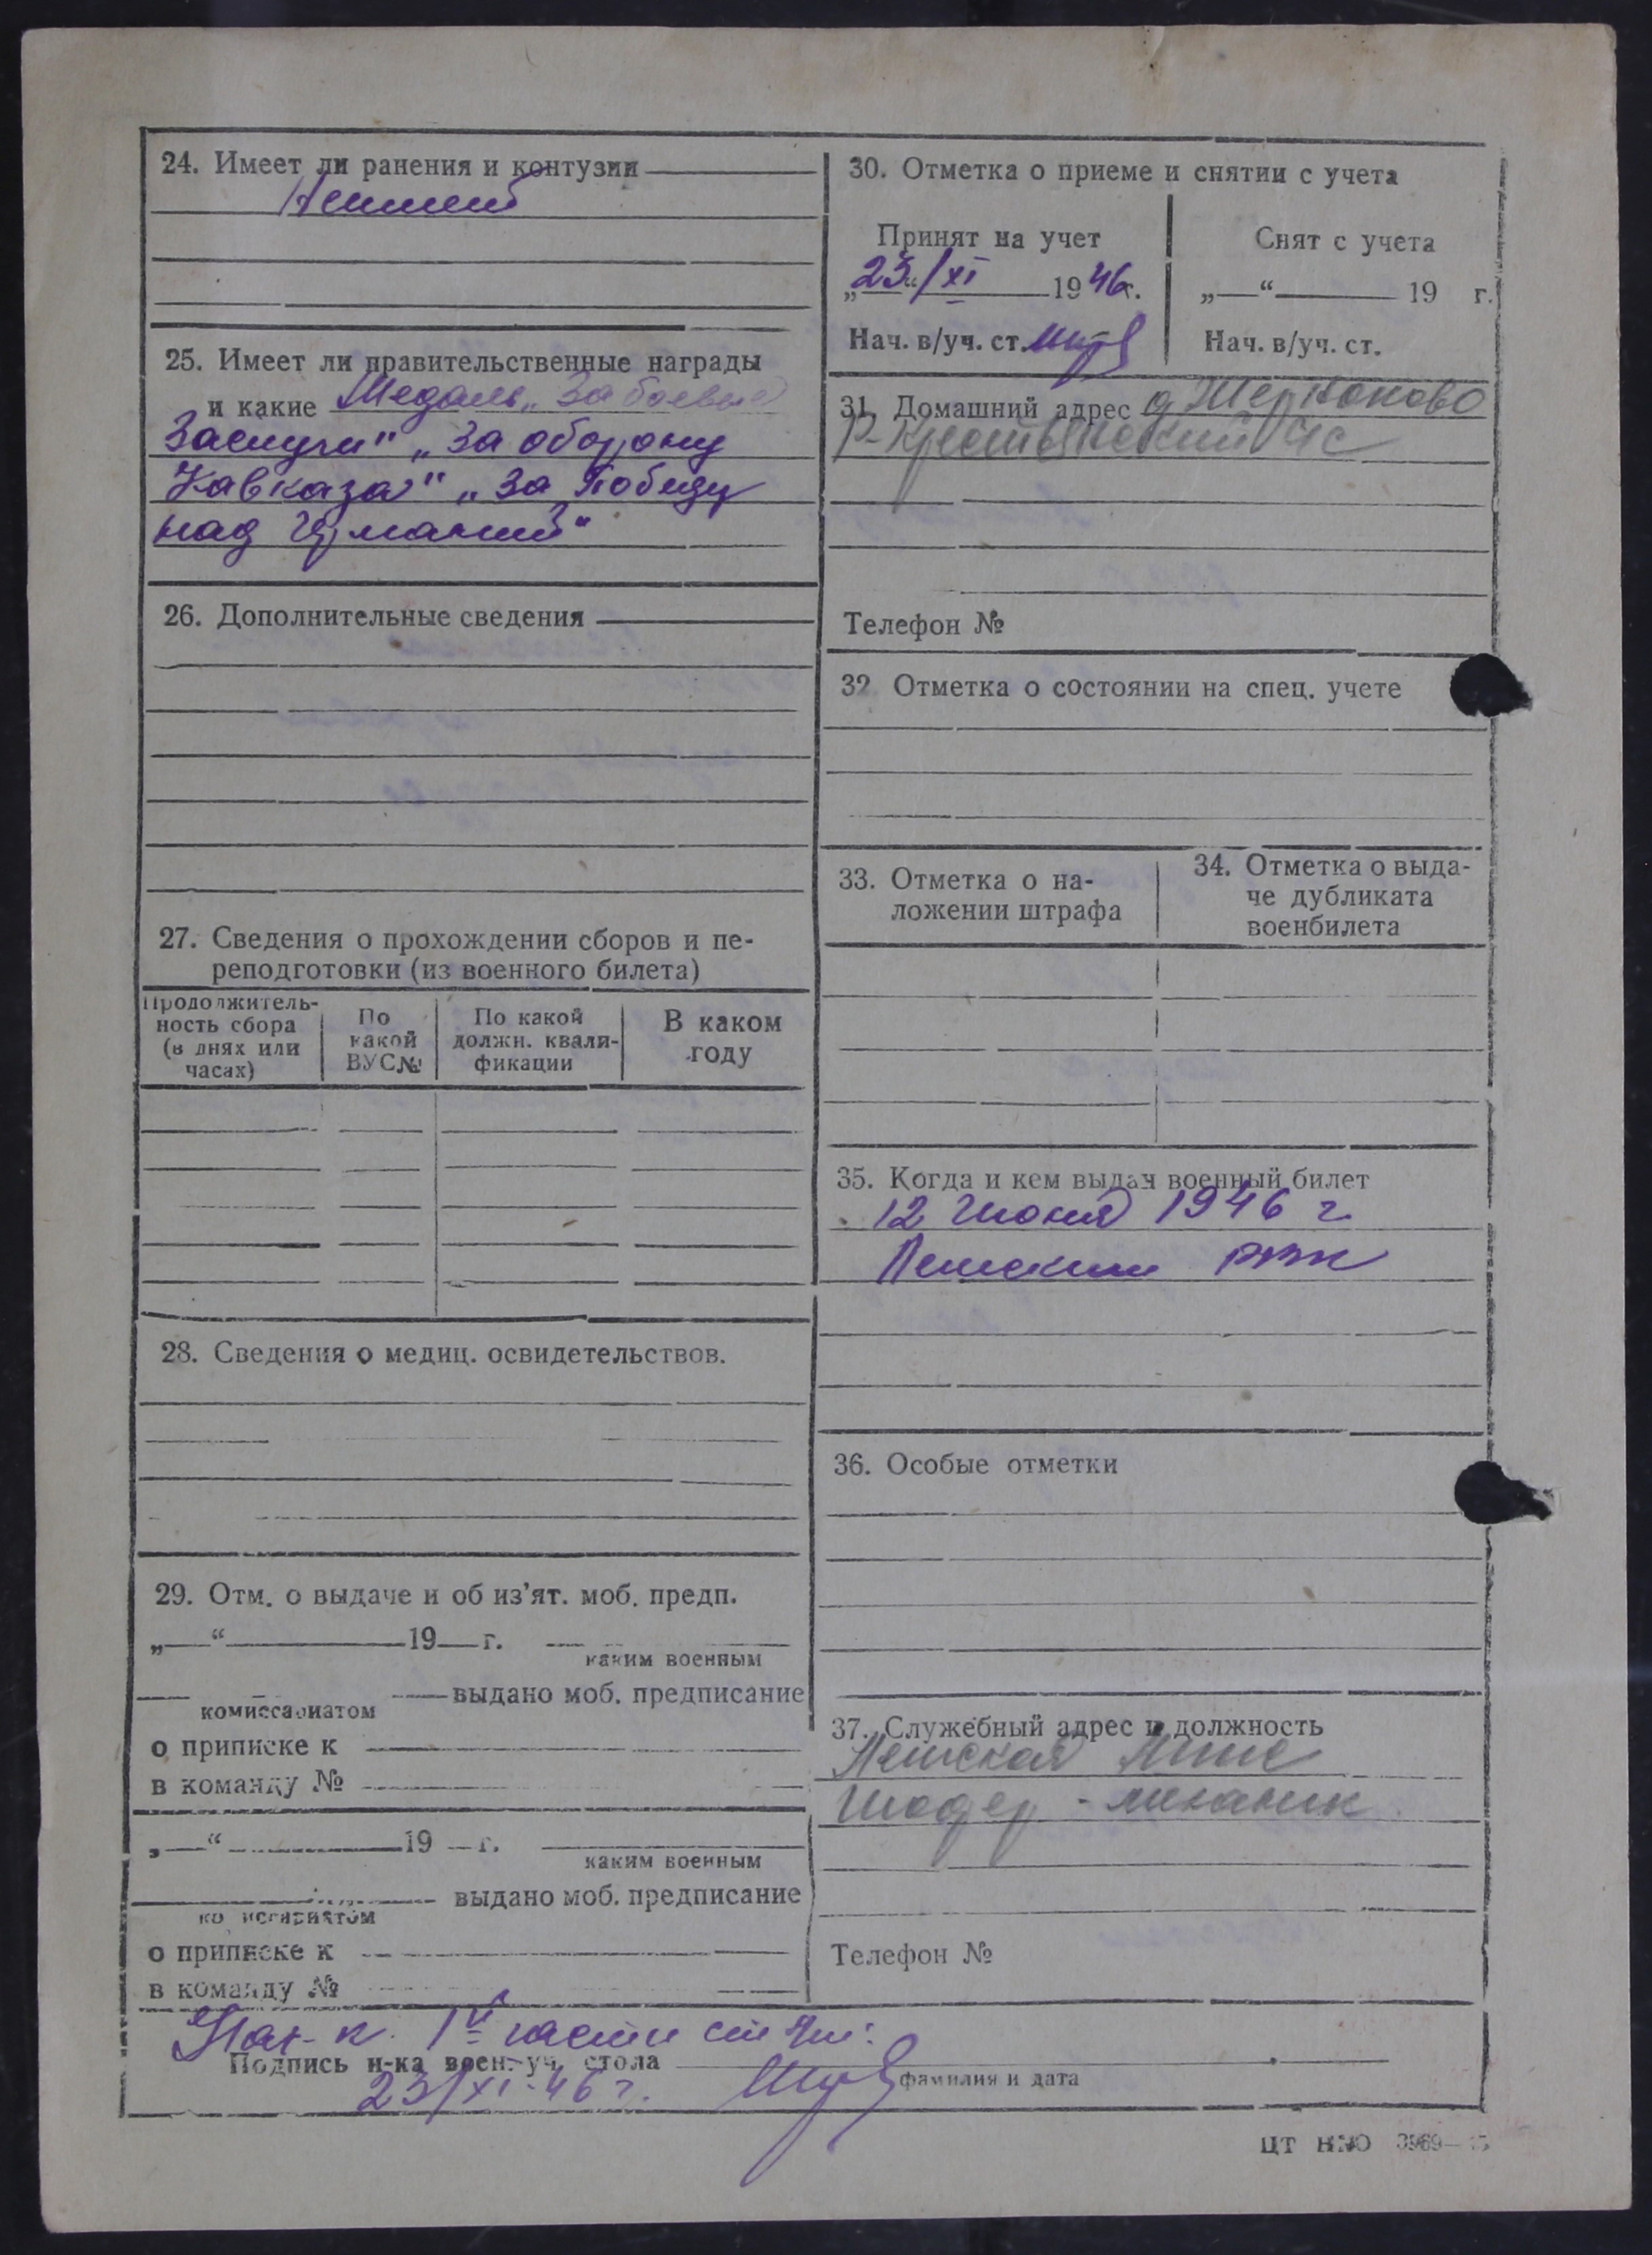 24. Имеет ли ранения и контузии
Неимеет
25. Имеет ли правительственные награды
и какие Медаль „За боевые
Заслуги" „За оборону
Кавказа" „За Победу
над Германией"
26. Дополнительные сведения
27. Сведения о прохождении сборов и пе-
реподготовки (из военного билета)
Продолжитель-
ность сбора
(в днях или
часах)
По
какой
ВУС№
По какой
должн. квали-
фикации
В каком
году
28. Сведения о медиц. освидетельствов.
29. Отм. о выдаче и об из'ят. моб. предп.
„—“ 19 г.
каким военным
комиссариатом выдано моб. предписание
о приписке к
в команду №
„—“ 19 г.
каким военным
комиссариатом выдано моб. предписание
о приписке к
в команду №
30. Отметка о приеме и снятии с учета
Принят на учет
„23“/XI 1946г.
Нач. в/уч. ст.
Снят с учета
„—“ 19 г.
Нач. в/уч. ст.
31. Домашний адрес д
Р-Крестьянский с/с
Телефон №
32 Отметка о состоянии на спец. учете
33. Отметка о на-
ложении штрафа
34. Отметка о выда-
че дубликата
военбилета
35. Когда и кем выдан военный билет
12 Июня 1946 г.
РВК
36. Особые отметки
37. Служебный адрес и должность
механик
Телефон №
Нач-к 1й части
Подпись н-ка воен.-уч. стола
23/XI-46 г.
фамилия и дата
ЦТ НКО 3969—